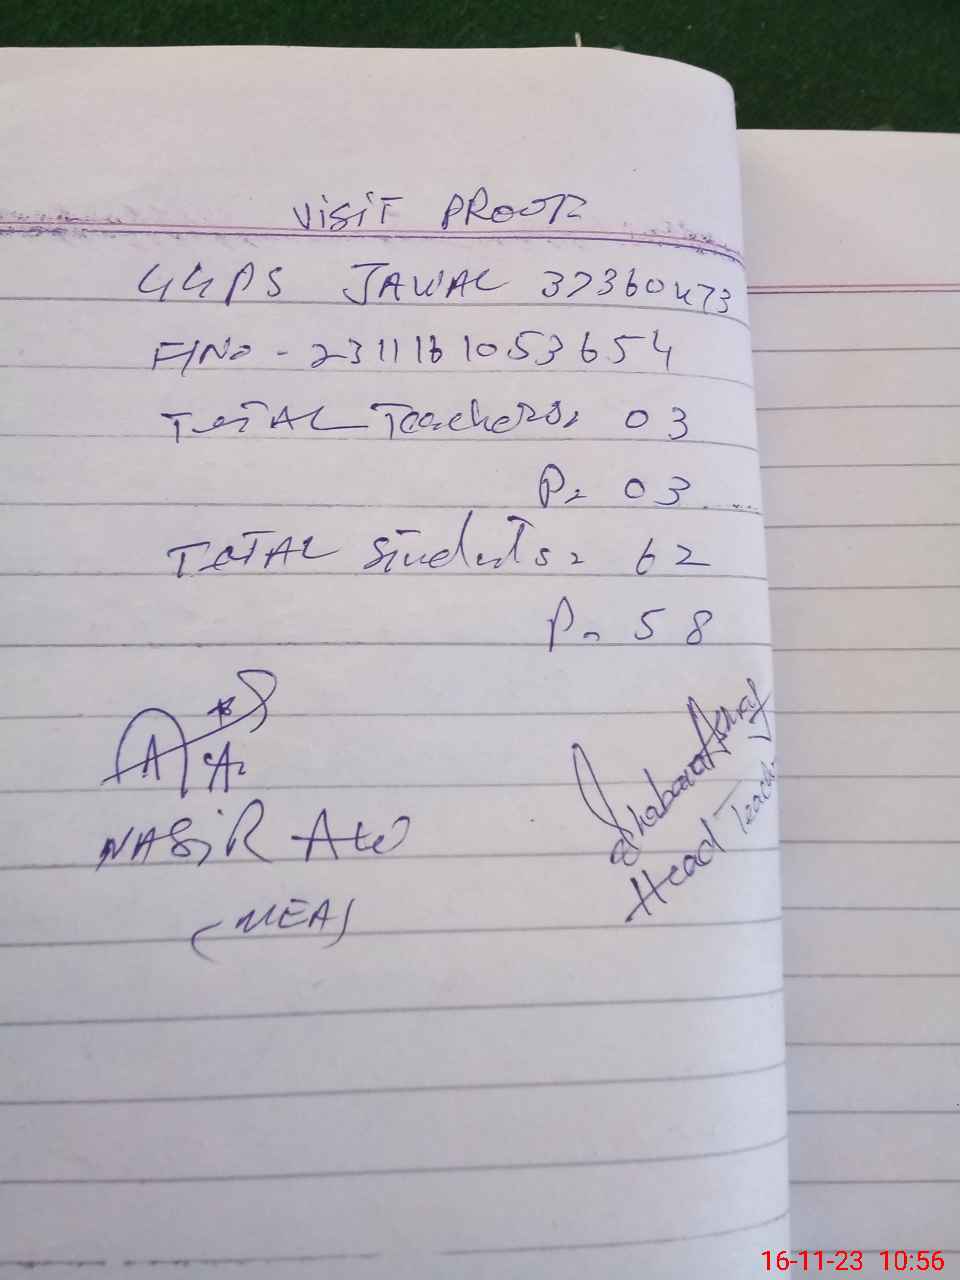 VISIT PROOF
GGPS JAWAL 37360473
F/No - 231116 1053654
TOTAL Teachers = 03
P = 03
TOTAL Students = 62
P = 58
NASIR ALI
(MEA)
Shabana Ashraf
Head Teacher
16-11-23 10:56